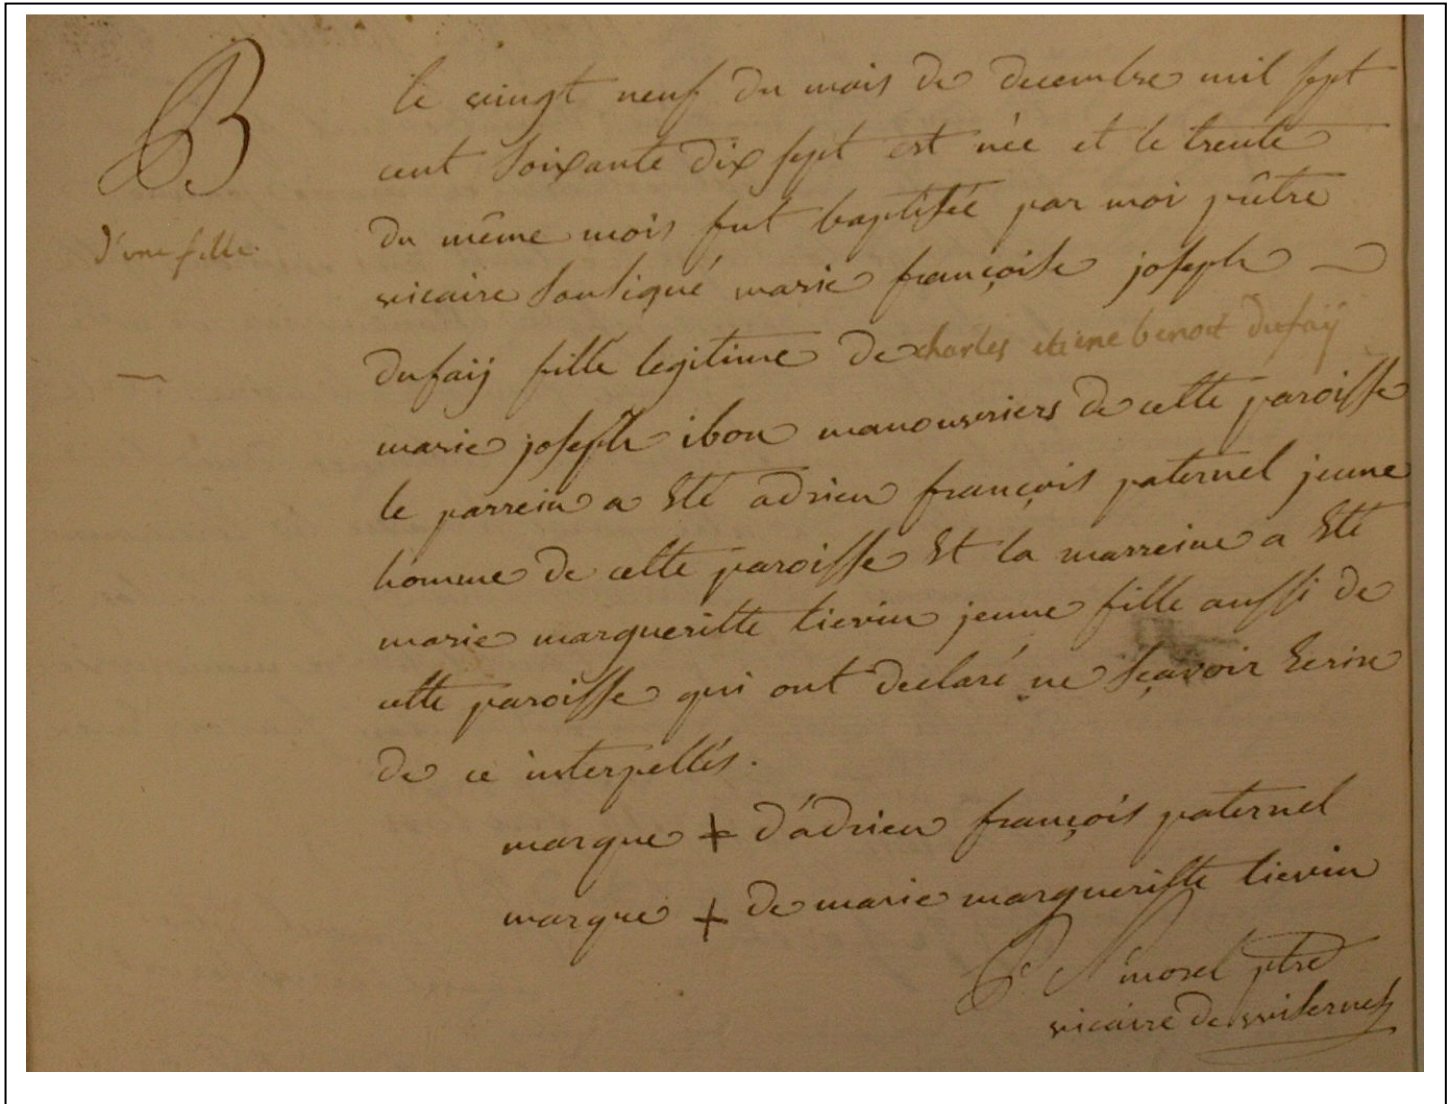 B
d'une fille
le vingt neuf du mois de decembre mil sept
cent soixante dix sept est née et le trente
du même mois fut baptisée par moi prêtre
vicaire soussigné marie françoise joseph
dufaÿ fille legitime de charles etienne benoit dufaÿ
marie joseph ibon manouvriers de cette paroisse
le parrein a Eté adrien françois paternel jeune
homme de cette paroisse Et la marreine a Eté
marie margueritte lievin jeune fille aussi de
cette paroisse qui ont declaré ne sçavoir Ecrire
de ce interpellés.
marque + d'adrien françois paternel
marque + de marie margueritte lievin
morel ptre
vicaire de wisernes